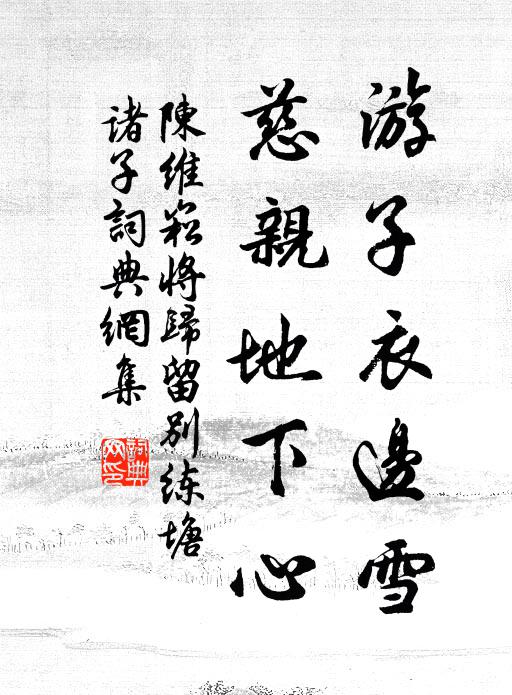 游子衣邊雪
慈親地下心
陳維崧將歸留別练塘
诸子詞典網集
詞典
网印